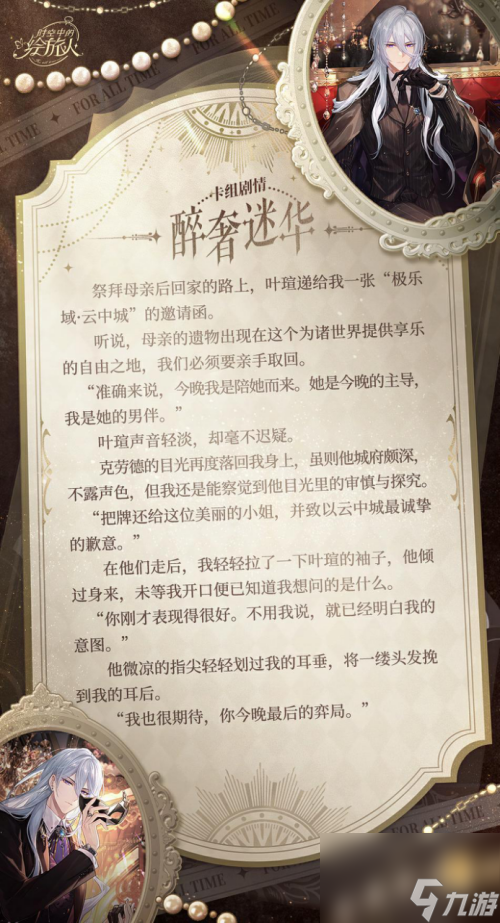 时空中的
绘旅人
FOR ALL TIME
FOR ALL TIME
卡组剧情
醉奢迷华
祭拜母亲后回家的路上，叶瑄递给我一张“极乐
域·云中城”的邀请函。
听说，母亲的遗物出现在这个为诸世界提供享乐
的自由之地，我们必须要亲手取回。
“准确来说，今晚我是陪她而来。她是今晚的主导，
我是她的男伴。”
叶瑄声音轻淡，却毫不迟疑。
克劳德的目光再度落回我身上，虽则他城府颇深，
不露声色，但我还是能察觉到他目光里的审慎与探究。
“把牌还给这位美丽的小姐，并致以云中城最诚挚
的歉意。”
在他们走后，我轻轻拉了一下叶瑄的袖子，他倾
过身来，未等我开口便已知道我想问的是什么。
“你刚才表现得很好。不用我说，就已经明白我的
意图。”
他微凉的指尖轻轻划过我的耳垂，将一缕头发挽
到我的耳后。
“我也很期待，你今晚最后的弈局。”
ALL TIME
FOR ALL TIME
九游